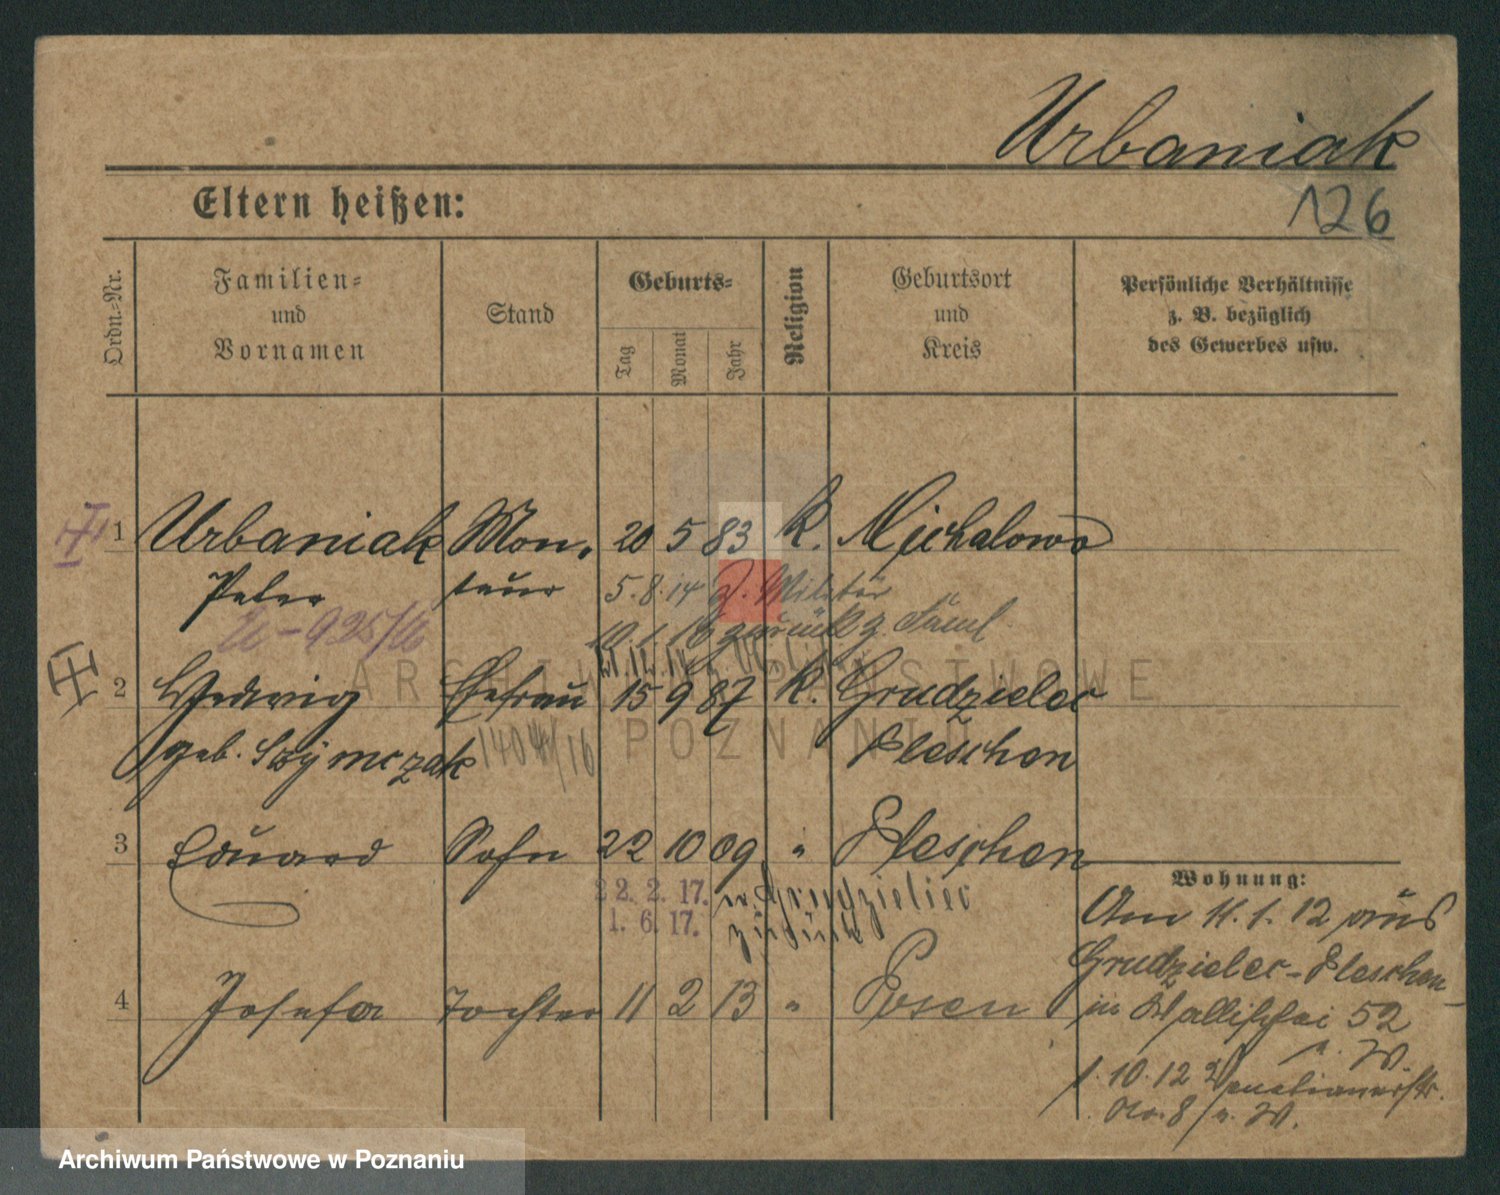 Urbaniak
126
Eltern heißen:
Ordn.-Nr.
Familien- und Vornamen
Stand
Geburts-
Tag
Monat
Jahr
Religion
Geburtsort und Kreis
Persönliche Verhältnisse
z. B. bezüglich
des Gewerbes usw.
1 Urbaniak Mon. 20 5 83 K. Michalowo
Peter teur 5.8.14 z. Militär
10.1.16 zurück z. Faml.
2 Hedwig Ehefrau 15 9 87 K. Grudzielec
geb. Szymczak 1404/16 Pleschen
3 Eduard Sohn 22 10 09 " Pleschen
22. 2. 17. n. Grudzielec
1. 6. 17. zurück
4 Josefa Tochter 11 2 13 " Posen
Wohnung:
Am 11.1.12 aus
Grudzielec-Pleschen
in Wallischei 52
b. W.
1.10.12 Venetianerstr.
No. 8 b. W.
ARCHIWUM PAŃSTWOWE
POZNAŃ
Archiwum Państwowe w Poznaniu